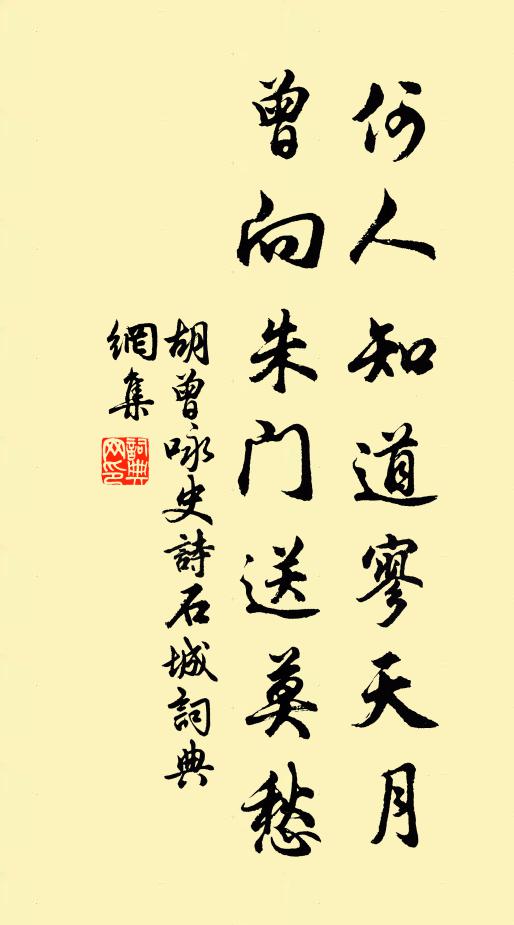 何人知道寥天月
曾向朱门送莫愁
胡曾咏史詩石城詞典
網集
詞典
网印